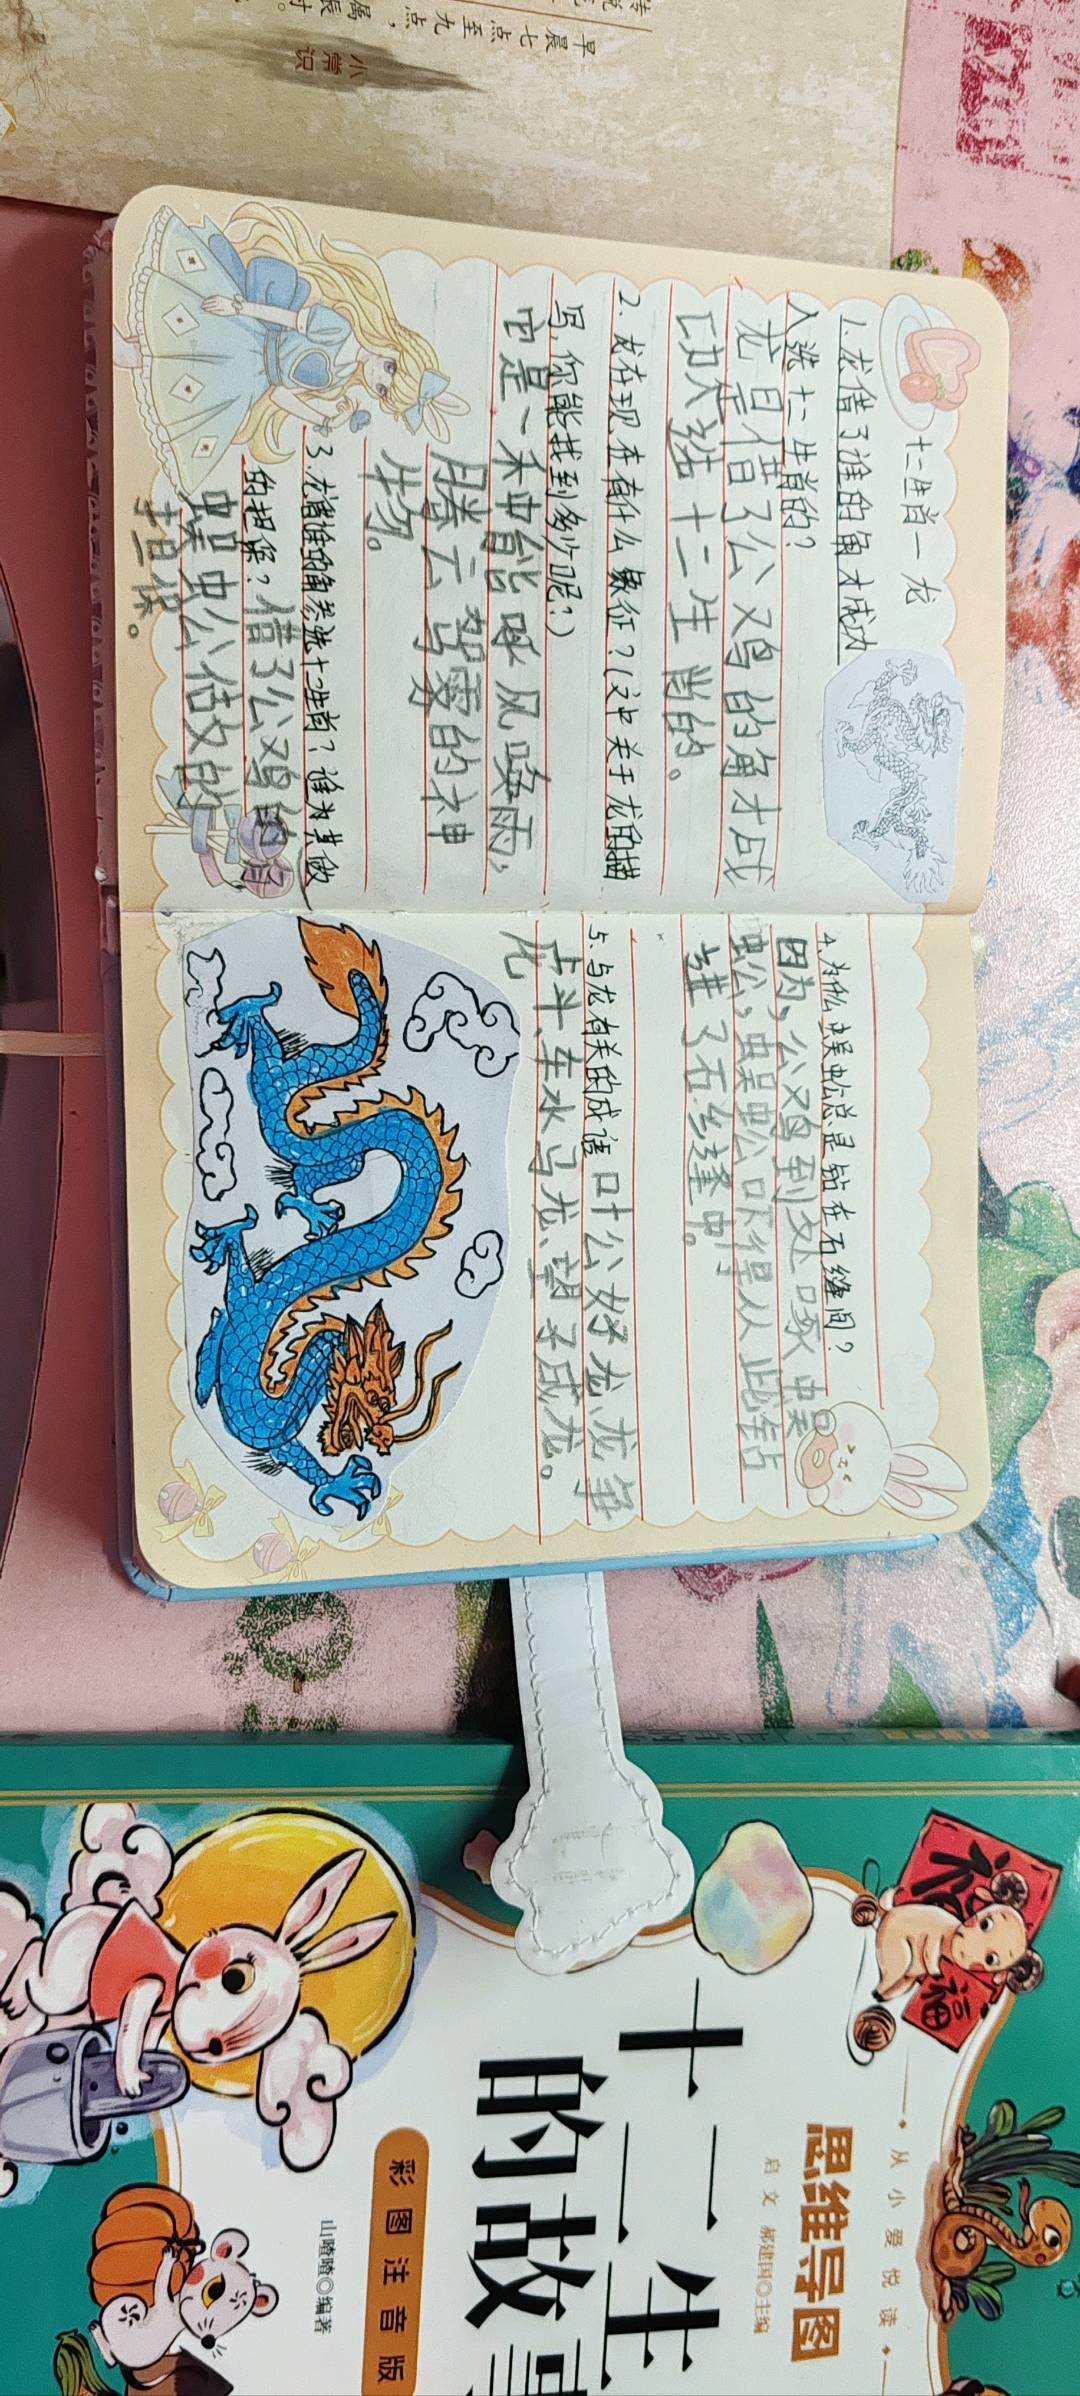 小常识
早晨七点至九点，
十二生肖一龙
1.龙借了谁的角才成功
入选十二生肖的？
龙是借了公鸡的角才成
功入选十二生肖的。
2.龙在现在有什么象征？(文中关于龙的描
写,你能找到多少呢？)
它是一种能呼风唤雨，
腾云驾雾的神
生物。
3.龙借谁的角参选十二生肖？谁为其做
的担保？借了公鸡的
蜈蚣公做的
担保。
4.为什么蜈蚣总是钻在石缝间？
因为，公鸡到处啄蜈
蚣，蜈蚣吓得从此钻
进了石缝中。
5.与龙有关的成语 叶公好龙、龙争
虎斗、车水马龙、望子成龙。
从小爱悦读
思维导图
启文 郝建国◎主编
十二生
的故事
彩图注音版
山喳喳◎编著
福